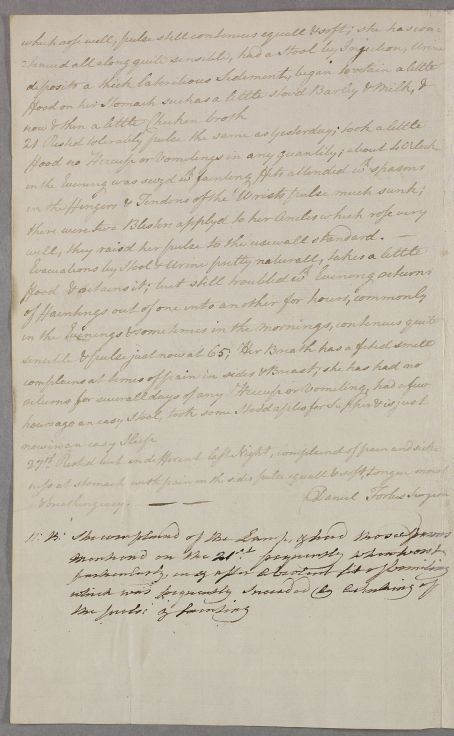 which rose well, pulse still continues equall & soft; she has con=
=tinued all along quite sensible, had a Stool by Injection, Urine
deposits a thick lateritious Sediment, began to retain a little
food on her Stomach such as a little stov'd Barley & Milk, &
now & then a little Chicken broth
21 Rested tolerably, pulse the same as yesterday; took a little
food no Hiccup or Vomitings in any quantity; about 6 OClock
in the Evening was seized wt fainting fits attended wt spasms
in the fingers & Tendons of the Wrists pulse much sunk;
there were two Blisters applyd to her Ancles which rose very
well, they raisd her pulse to the usewall standard. —
Evacuations by Stool & Urine pretty naturall, takes a little
food & retains it; but still troubled wt Evening returns
of Faintings out of one into another for hours, commonly
in the Evenings & sometimes in the mornings, continues quite
sensible & pulse just now at 65; Her Breath has a fetid smell
complains at times of pain in sides & Breast; she has had no
returns for severall days of any Hiccup or Vomiting, had a few
hours ago an easy Stool, took some Stodd aples for Supper & is just
now in an easy Sleep
27th Rested but indifferent last Night, complaind of pain and sick-
ness at stomach with pain in the sides pulse equall & soft, Tongue moist
& breathing easy. — —
Daniel Forbes Surgeon
N: B: She complaind of the Cramp, & had those
on the 21st frequently
particularly, after a violent fit of fainting
which was frequently succeeded by a sinking of
the pulse; & fainting